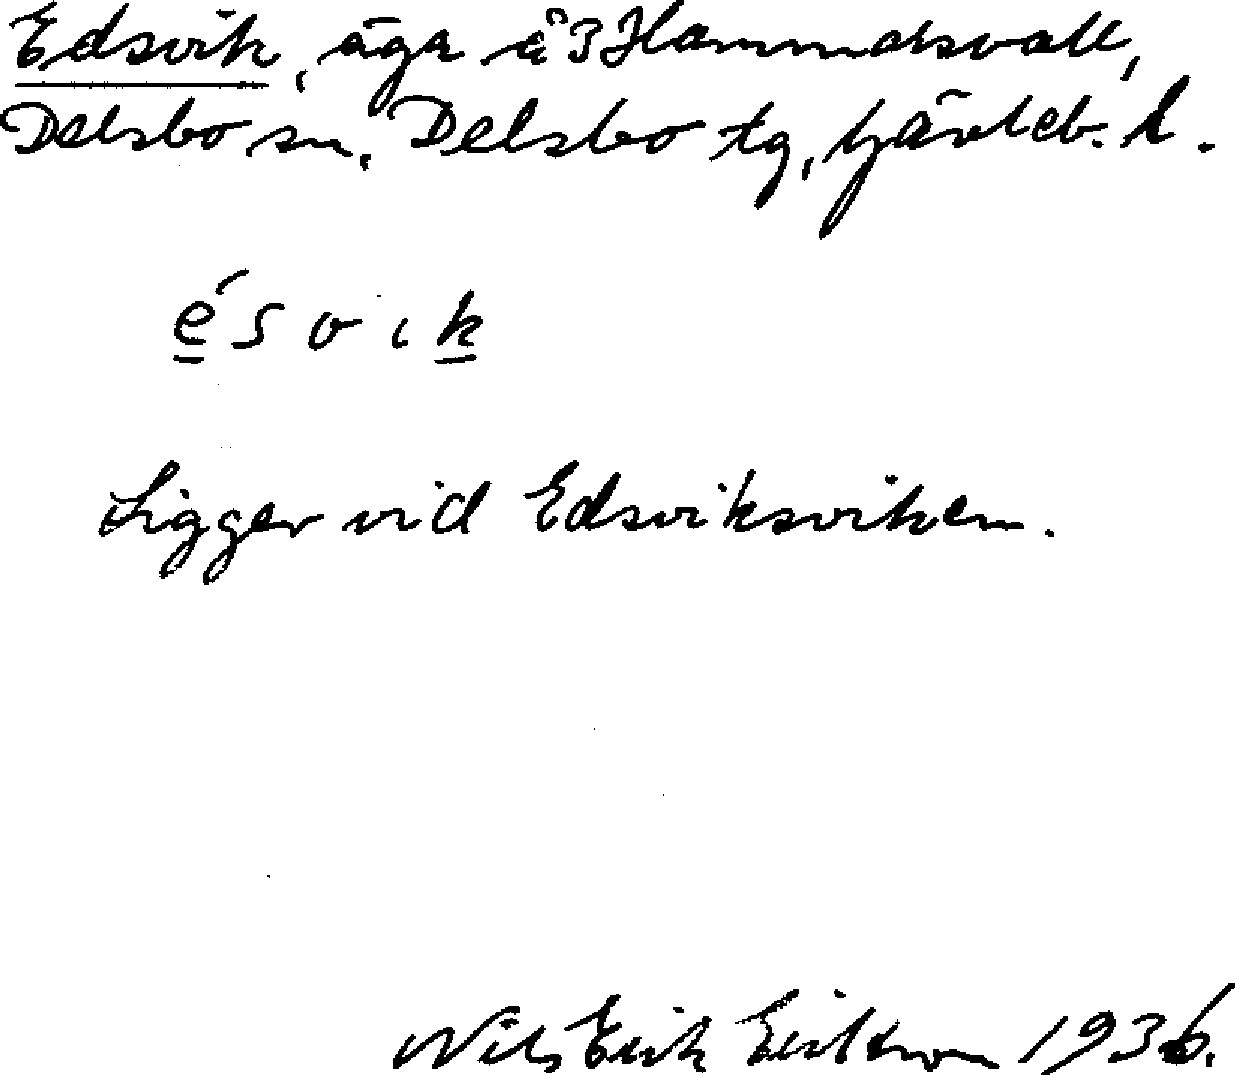 Edsvik, äga å 3 Hammarsvall,
Delsbo sn, Delsbo tg, Gävleb. l.
é s v ı k
Ligger vid Edsviksviken.
Nils Erik Eriksson 1936.